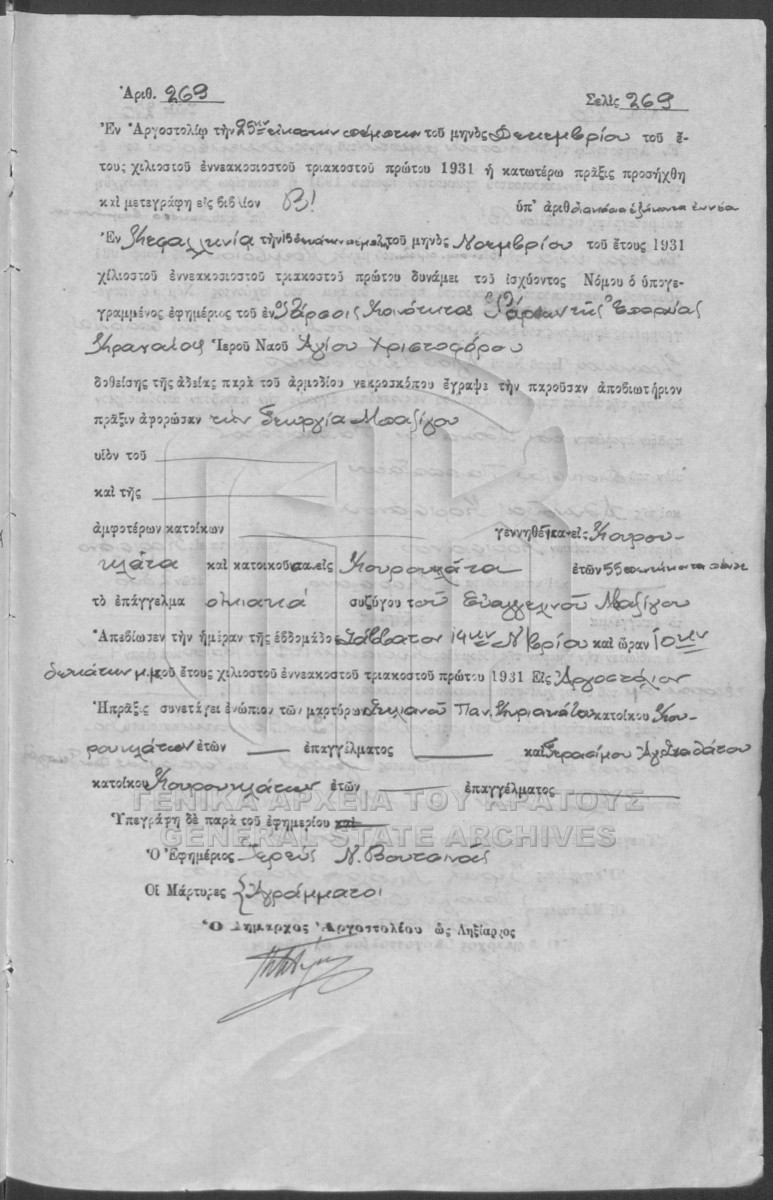 Ἀριθ. 269 Σελὶς 269
Ἐν Ἀργοστολίῳ τὴν 25ην εἰκοστὴν πέμπτην τοῦ μηνὸς Δεκεμβρίου τοῦ ἔ-
τους χιλιοστοῦ ἐννεακοσιοστοῦ τριακοστοῦ πρώτου 1931 ἡ κατωτέρω πρᾶξις προσήχθη
καὶ μετεγράφη εἰς βιβλίον Β! ὑπ' ἀριθ διακόσια ἑξήκοντα ἐννέα
Ἐν Κεφαλληνία τὴν τοῦ μηνὸς Νοεμβρίου τοῦ ἔτους 1931
χιλιοστοῦ ἐννεακοσιοστοῦ τριακοστοῦ πρώτου δυνάμει τοῦ ἰσχύοντος Νόμου ὁ ὑπογε-
γραμμένος ἐφημέριος τοῦ ἐν Κοινότητος τῆς Ἐπαρχίας
Κραναίας Ἱεροῦ Ναοῦ Ἁγίου Χριστοφόρου
δοθείσης τῆς ἀδείας παρὰ τοῦ ἁρμοδίου νεκροσκόπου ἔγραψε τὴν παροῦσαν ἀποβιωτήριον
πρᾶξιν ἀφορῶσαν τὴν Γεωργία Μπαζίγου
υἱὸν τοῦ
καὶ τῆς
ἀμφοτέρων κατοίκων γεννηθεῖσα εἰς Κουρου-
κλάτα καὶ κατοικοῦσα εἰς Κουρουκλάτα ἐτῶν 55 πενήκοντα πέντε
τὸ ἐπάγγελμα οἰκιακά συζύγου τοῦ Εὐαγγελινοῦ Μαζίγου
Ἀπεβίωσεν τὴν ἡμέραν τῆς ἑβδομάδος Σάββατον 14ην Νβρίου καὶ ὥραν 10ην
δεκάτην μ.μ. τοῦ ἔτους χιλιοστοῦ ἐννεακοστοῦ τριακοστοῦ πρώτου 1931 Εἰς Ἀργοστόλιον
Ἡ πρᾶξις συνετάγει ἐνώπιον τῶν μαρτύρων Παν. κατοίκου Κου-
ρουκλάτων ἐτῶν ἐπαγγέλματος καὶ Γερασίμου
κατοίκου Κουρουκλάτων ἐτῶν ἐπαγγέλματος
ΓΕΝΙΚΑ ΑΡΧΕΙΑ ΤΟΥ ΚΡΑΤΟΥΣ
Ὑπεγράφη δὲ παρὰ τοῦ ἐφημερίου καὶ
GENERAL STATE ARCHIVES
Ὁ Ἐφημέριος Ἱερεὺς Ν. Βουτσινᾶς
Οἱ Μάρτυρες { Ἀγράμματοι
Ὁ Δήμαρχος Ἀργοστολίου ὡς Ληξίαρχος